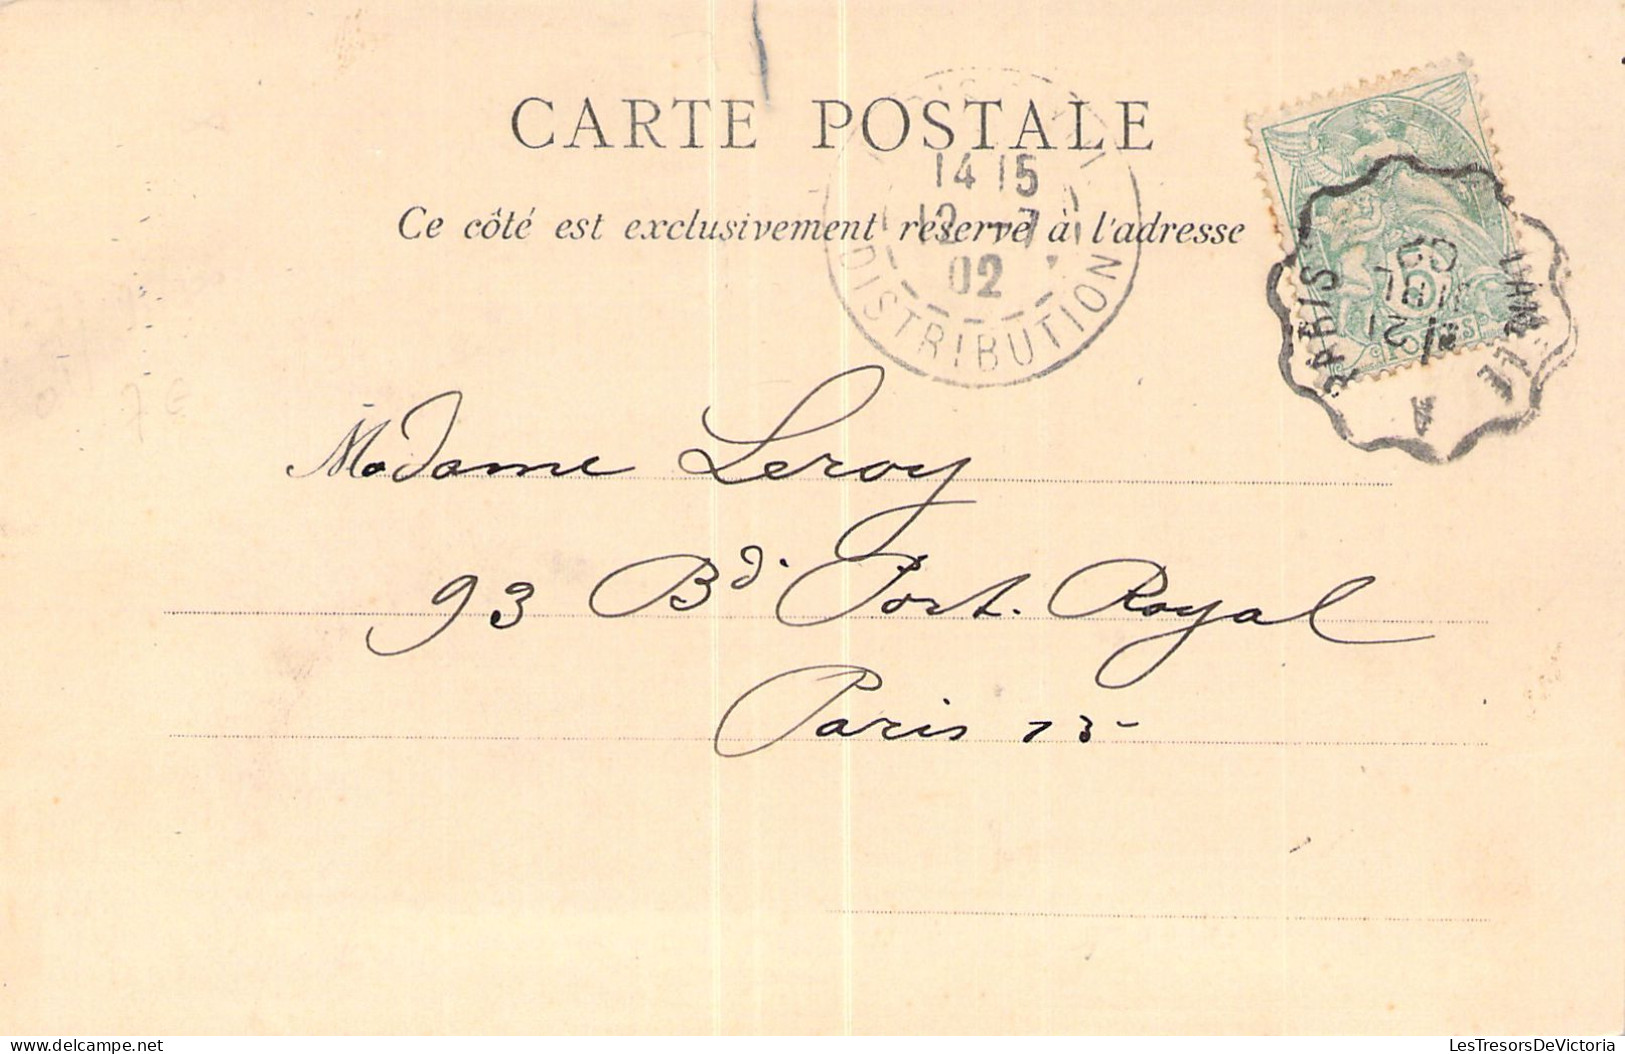 CARTE POSTALE
Ce côté est exclusivement réservé à l'adresse
14 15
12 -7
02
DISTRIBUTION
PARIS
A
5
POSTES
Madame Leroy
93 Bd. Port-Royal
Paris 13-
7€
LesTresorsDeVictoria.com